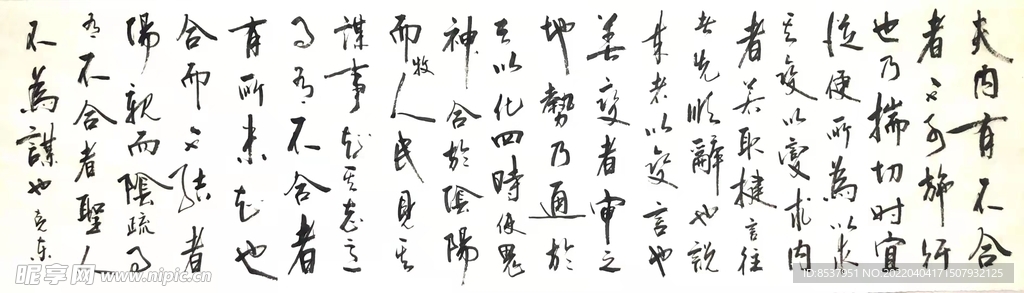 夫内有不合
者不可施行
也乃揣切时宜
從便所為以求
其變以變求内
者若取揵言往
者先順辭也説
来者以變言也
善變者审之
地勢乃通於
天以化四時使鬼
神合於陰陽
而牧人民見其
謀事知其志意
事有不合者
有所未知也
合而不結者
陽親而陰疏事
有不合者聖人
不為謀也
昵享网 www.nipic.cn
ID:8537951 NO:20220404171507932125